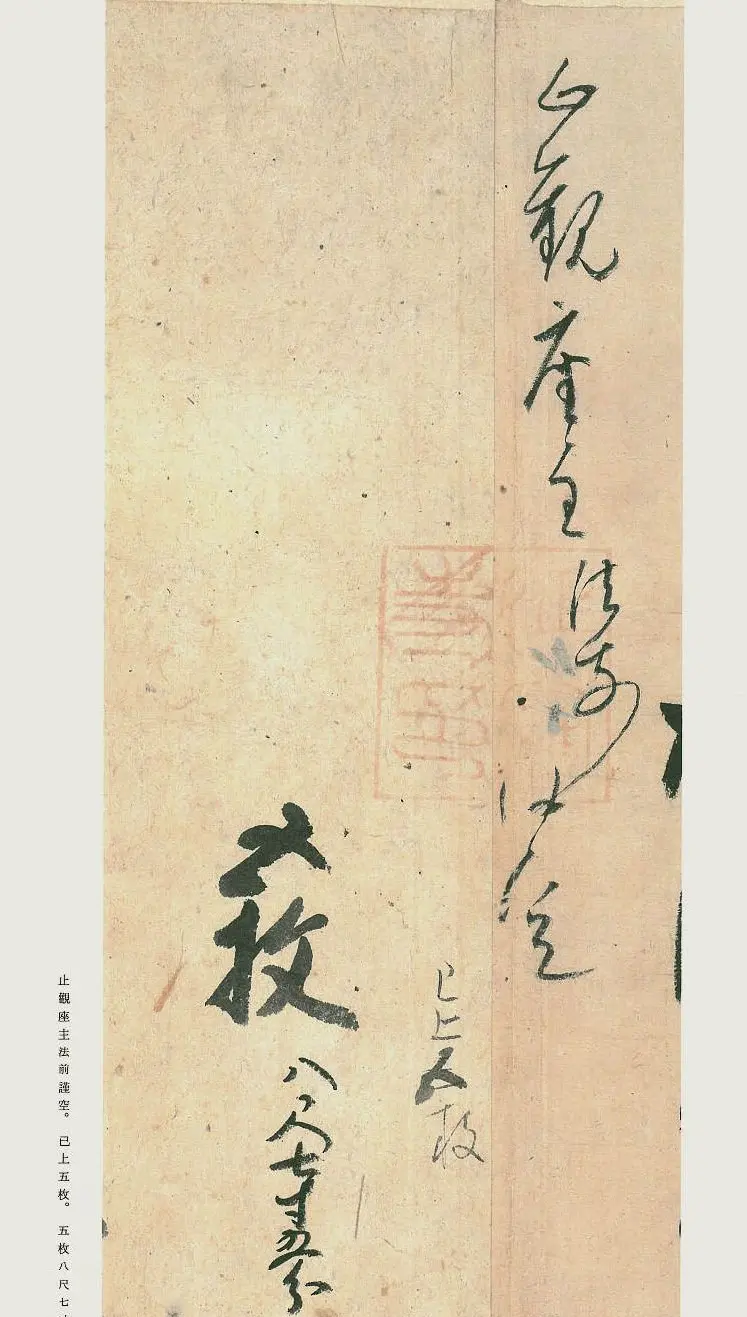 止觀座主法前謹空
已上五枚
五枚
八尺七寸五分
止觀座主法前謹空。已上五枚。五枚八尺七